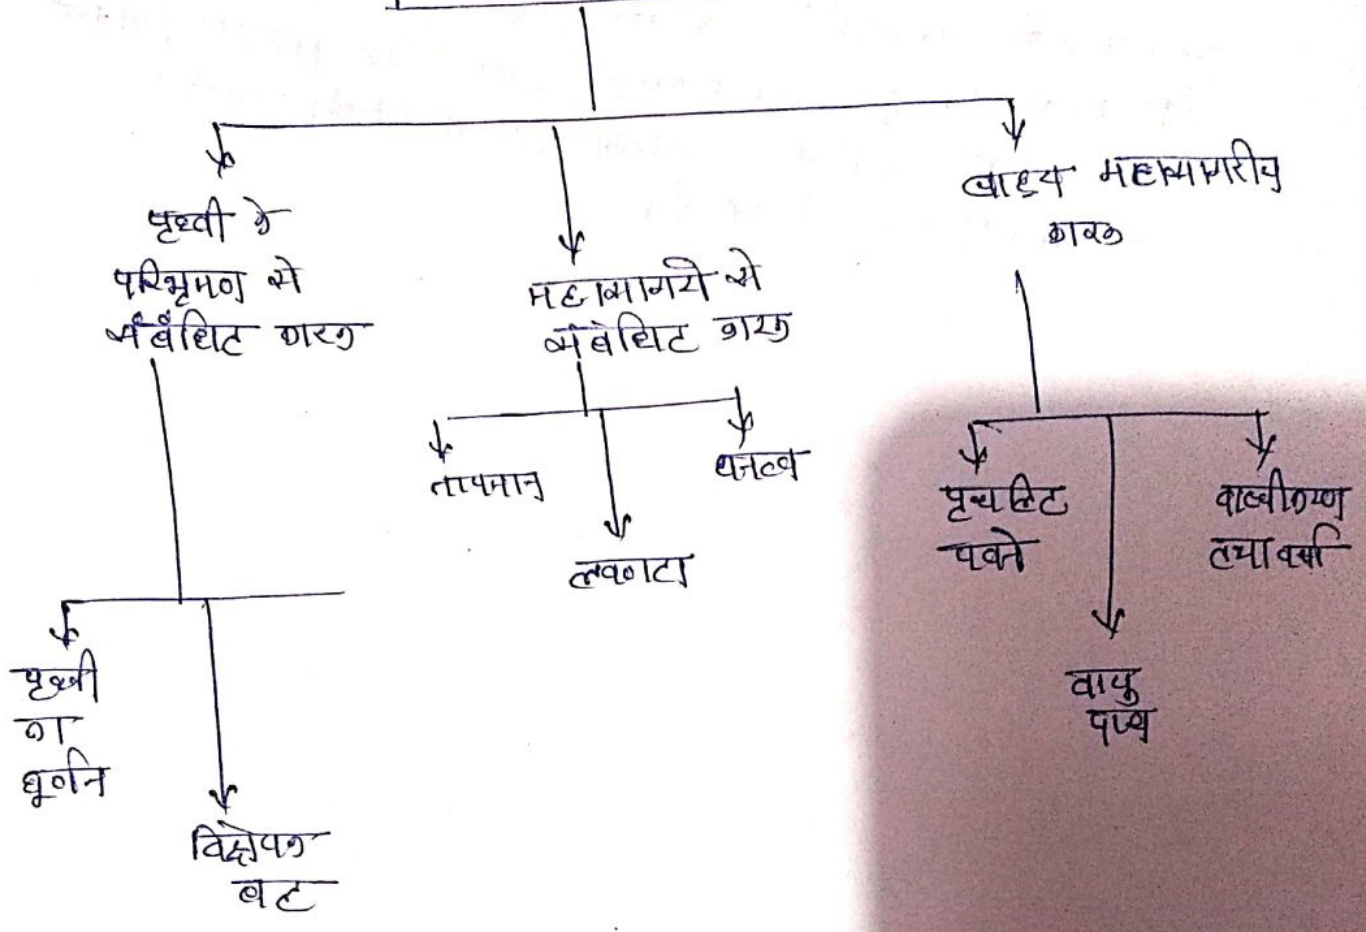 पृथ्वी के
परिभ्रमण से
संबंधित कारक
महासागरों से
संबंधित कारक
बाह्य महासागरीय
कारक
तापमान
लवणता
घनत्व
प्रचलित
पवने
वायु
दाब
वाष्पीकरण
तथा वर्षा
पृथ्वी
का
घूर्णन
विक्षेपक
बल